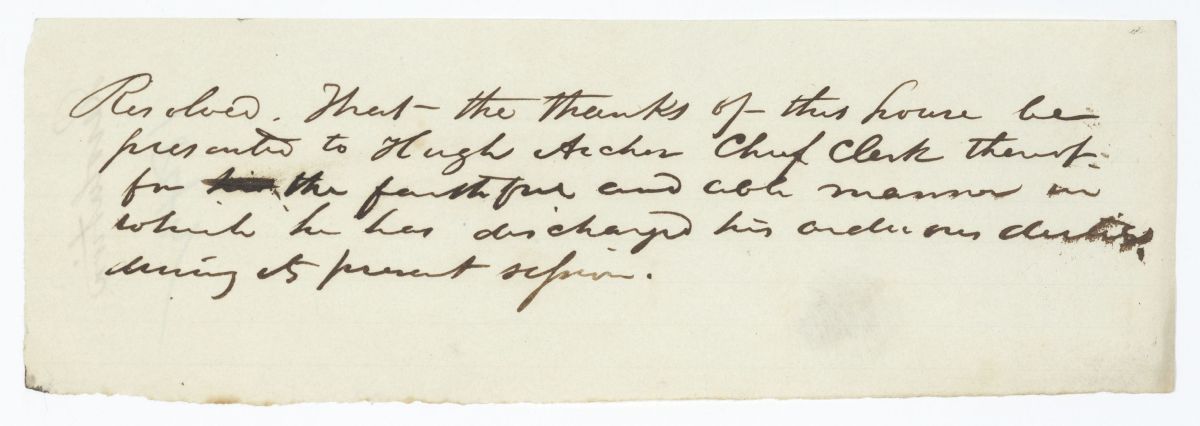 Resolved. That the thanks of this house be
presented to Hugh Archer Chief Clerk thereof
for his the faithful and able manner in
which he has discharged his arduous duties,
during its present session.